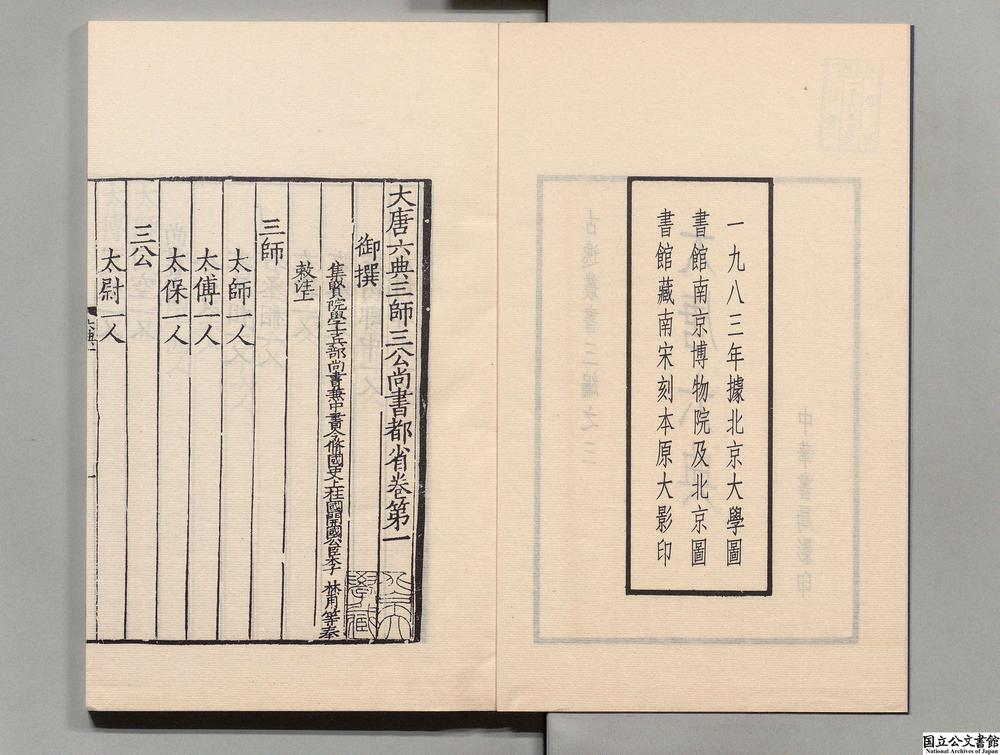 一九八三年據北京大學圖
書館南京博物院及北京圖
書館藏南宋刻本原大影印
大唐六典三師三公尚書都省卷第一
御撰
集賢院學士兵部尚書兼中書令脩國史上柱國開國公臣李 林甫等奉
敕注上
三師
太師一人
太傅一人
太保一人
三公
太尉一人
国立公文書館
National Archives of Japan